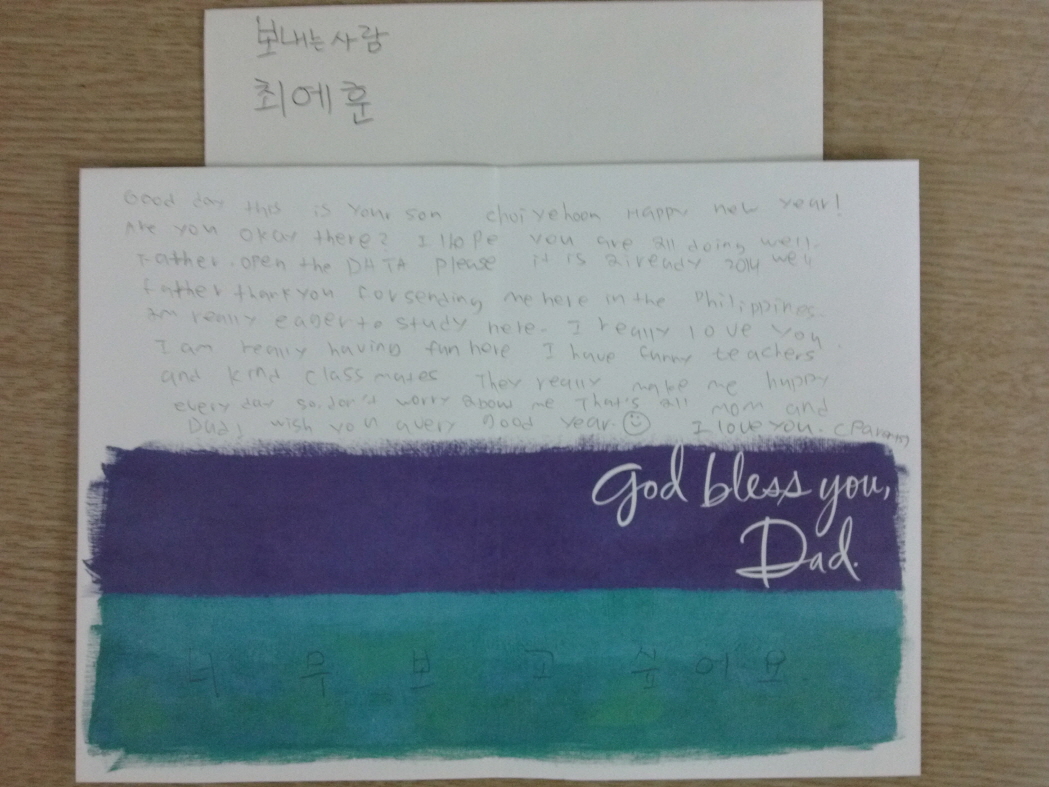 보내는사람
최예훈
Good day this is your son choi yehoon Happy new year!
Are you okay there? I Hope you are all doing well.
Father open the DATA please it is already 2014 well
father thank you for sending me here in the Philippines.
am really eager to study here. I really love you.
I am really having fun here I have funny teachers
and kind classmates They really make me happy
every day so. don't worry about me That's all mom and
Dad! wish you a very good year. I love you.
God bless you,
Dad.
우 보 고 싶 어 요